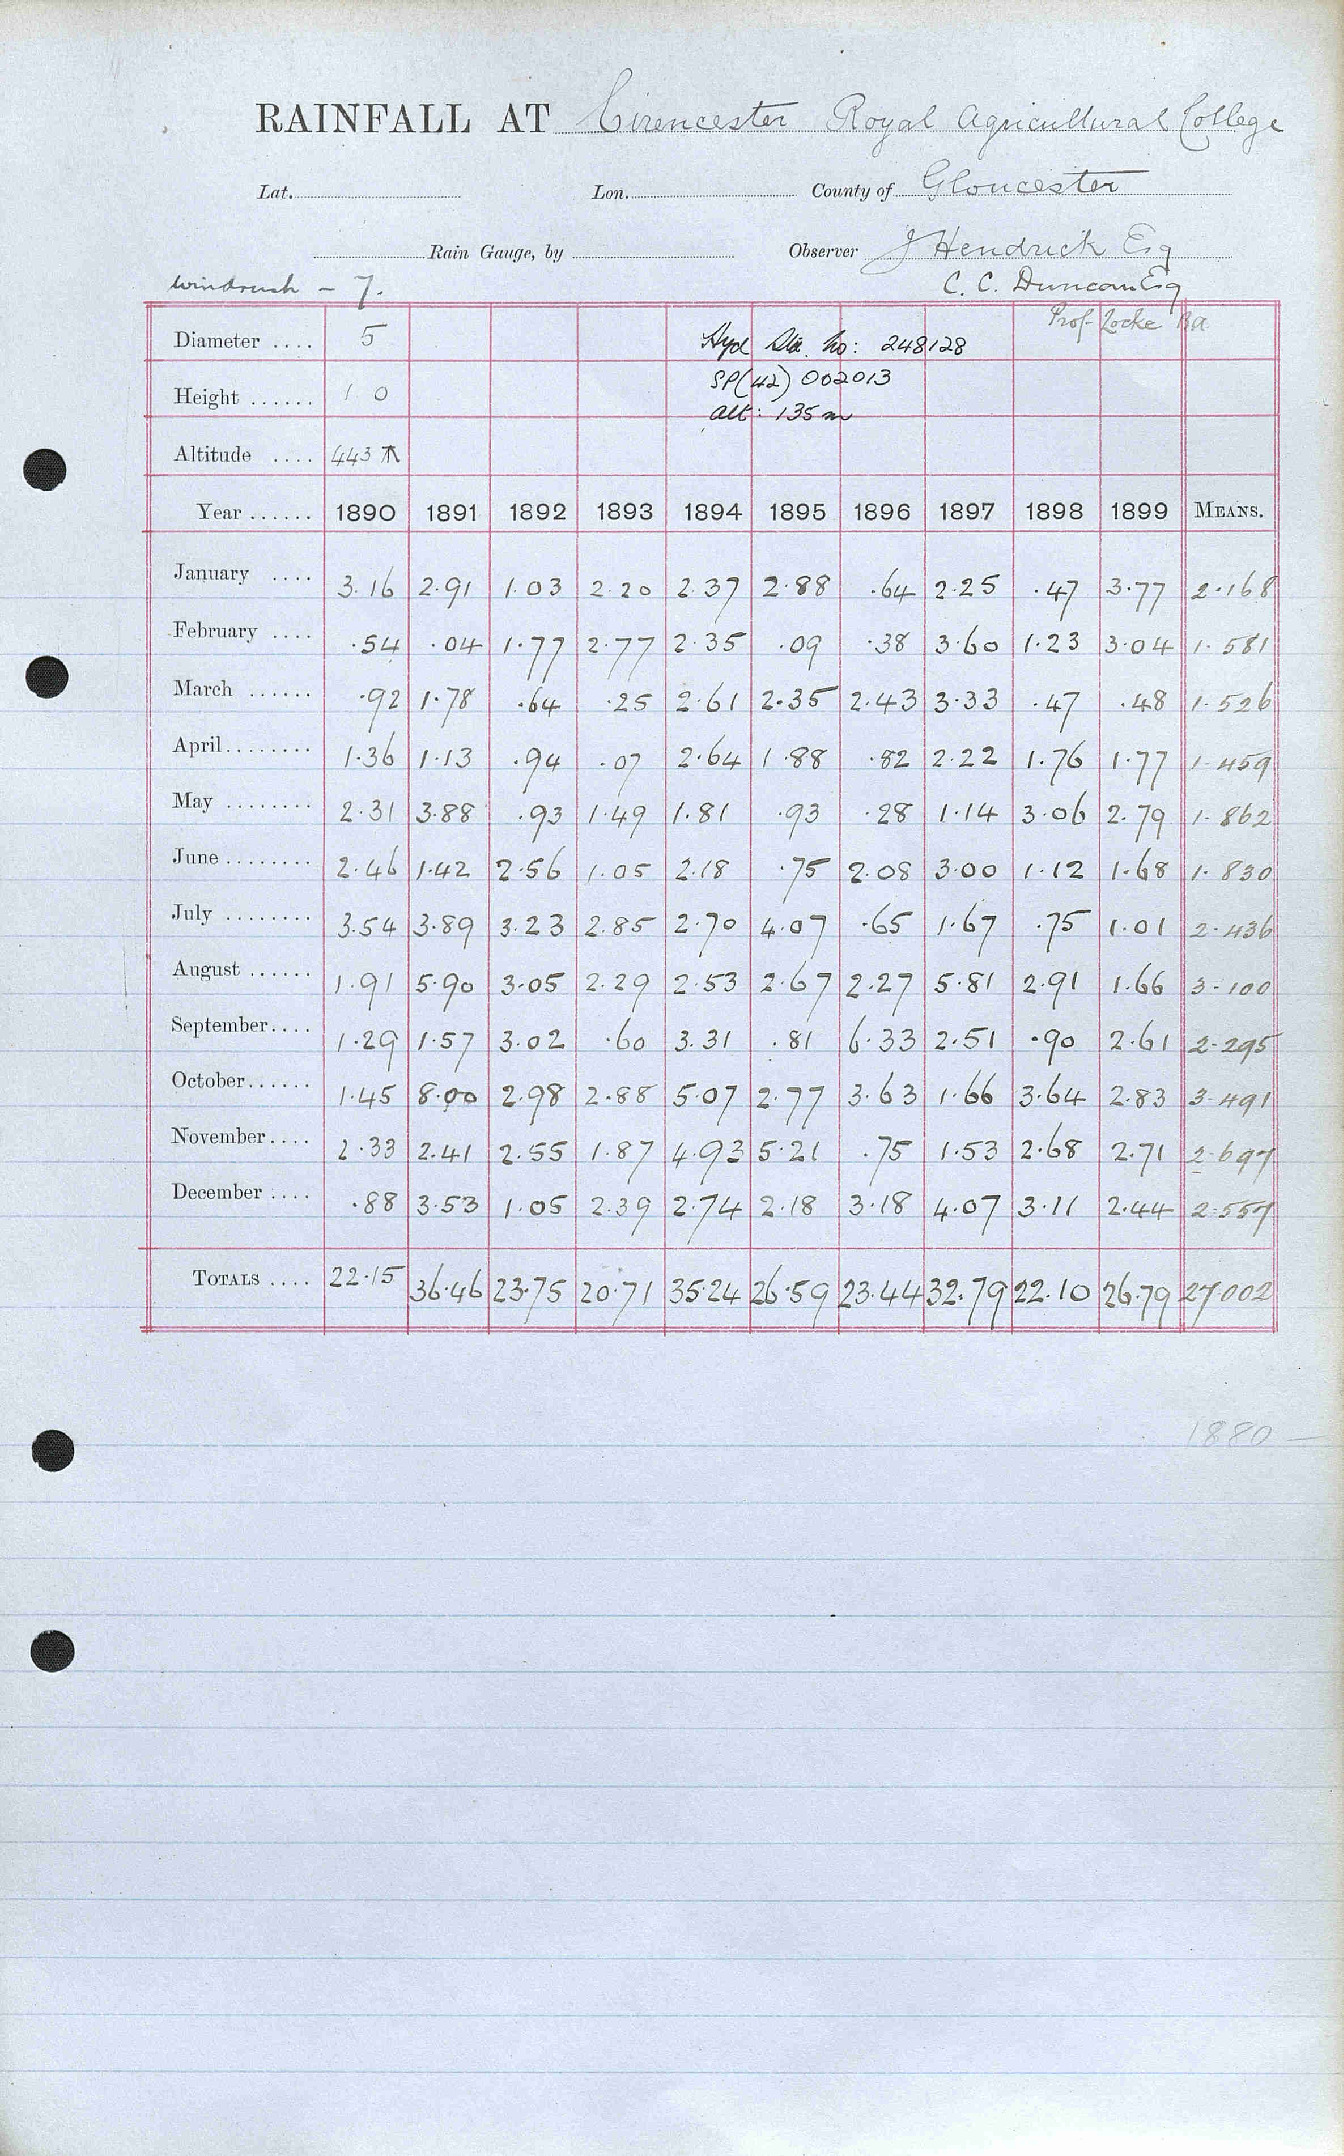 RAINFALL AT Cirencester Royal Agricultural College
Lat. Lon. County of Gloucester
Rain Gauge, by Observer J Hendrick Esq
Windrush - 7. C. C. Duncan Esq
Prof. Locke Ba
Diameter .... 5 Hyd Sta. No: 248128
SP(42) 002013
Height ...... 1 0
alt: 135 m
Altitude .... 443
Year ...... 1890 1891 1892 1893 1894 1895 1896 1897 1898 1899 MEANS.
January .... 3.16 2.91 1.03 2.20 2.37 2.88 .64 2.25 .47 3.77 2.168
February .... .54 .04 1.77 2.77 2.35 .09 .38 3.60 1.23 3.04 1.581
March ...... .92 1.78 .64 .25 2.61 2.35 2.43 3.33 .47 .48 1.526
April........ 1.36 1.13 .94 .07 2.64 1.88 .82 2.22 1.76 1.77 1.459
May ........ 2.31 3.88 .93 1.49 1.81 .93 .28 1.14 3.06 2.79 1.862
June ........ 2.46 1.42 2.56 1.05 2.18 .75 2.08 3.00 1.12 1.68 1.830
July ........ 3.54 3.89 3.23 2.85 2.70 4.07 .65 1.67 .75 1.01 2.436
August ...... 1.91 5.90 3.05 2.29 2.53 2.67 2.27 5.81 2.91 1.66 3.100
September.... 1.29 1.57 3.02 .60 3.31 .81 6.33 2.51 .90 2.61 2.295
October...... 1.45 8.00 2.98 2.88 5.07 2.77 3.63 1.66 3.64 2.83 3.491
November.... 2.33 2.41 2.55 1.87 4.93 5.21 .75 1.53 2.68 2.71 2.697
December .... .88 3.53 1.05 2.39 2.74 2.18 3.18 4.07 3.11 2.44 2.557
TOTALS .... 22.15 36.46 23.75 20.71 35.24 26.59 23.44 32.79 22.10 26.79 27.002
1880 —